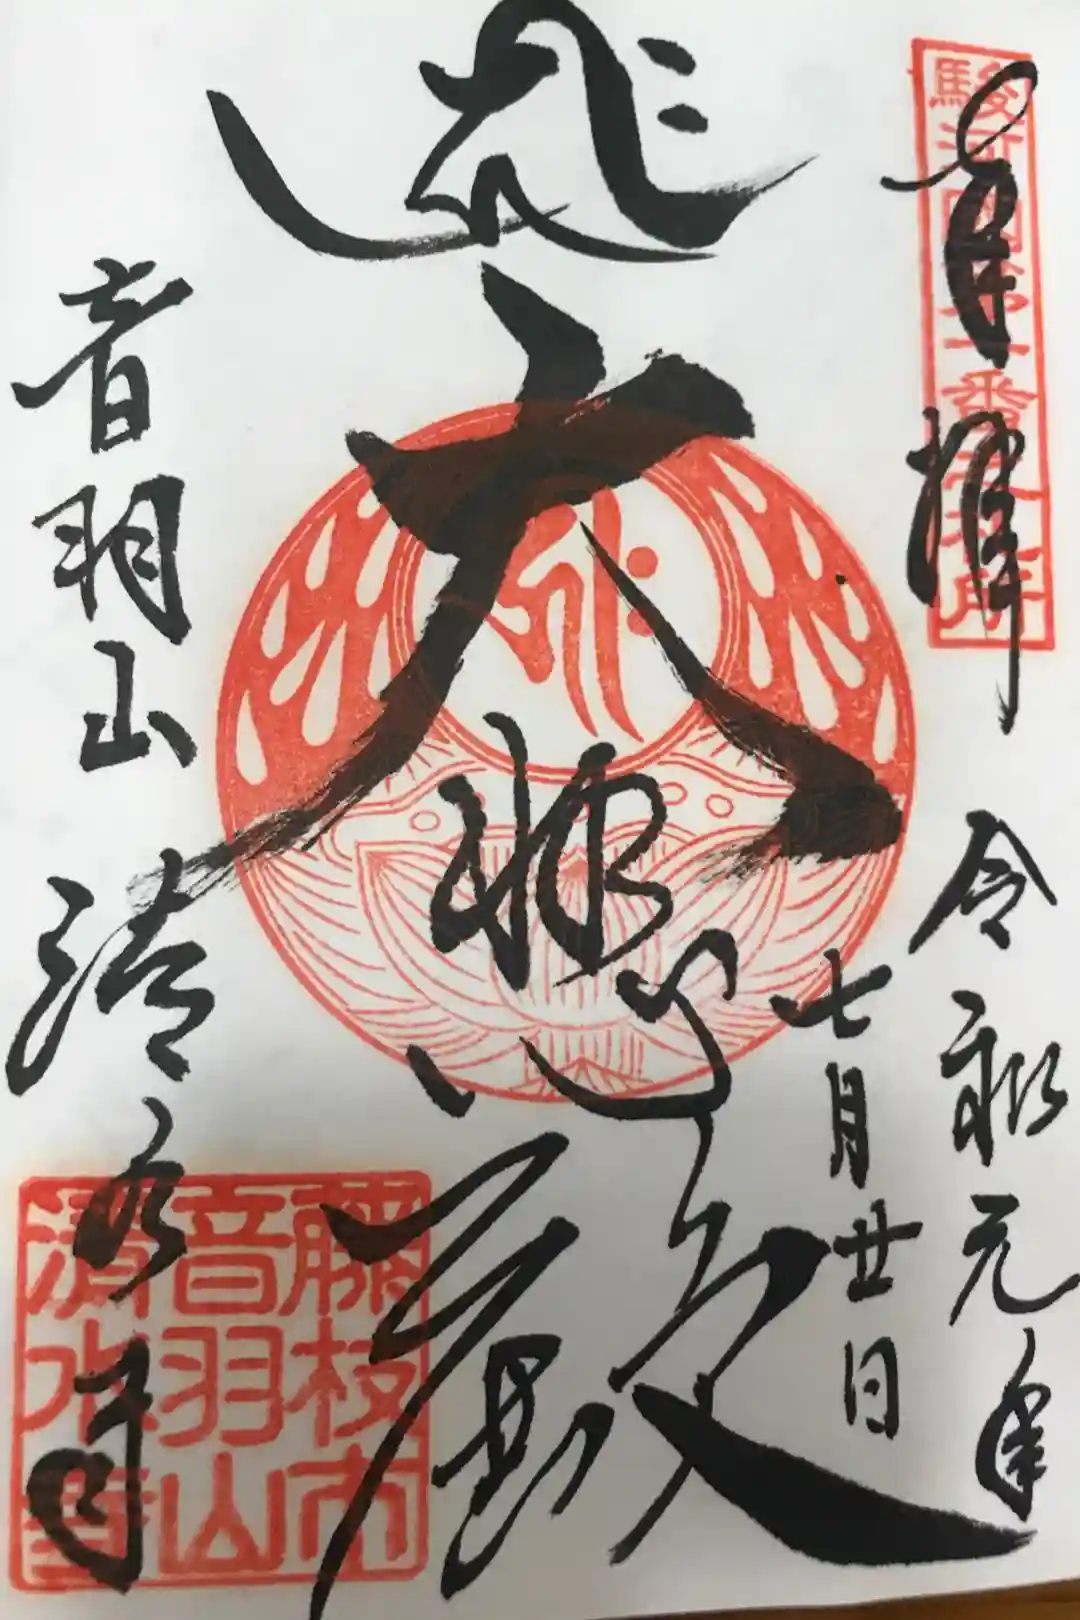 駿河国第一番札所
奉拝
令和元年
七月廿日
大悲殿
音羽山
清水寺
藤枝市
音羽山
清水寺